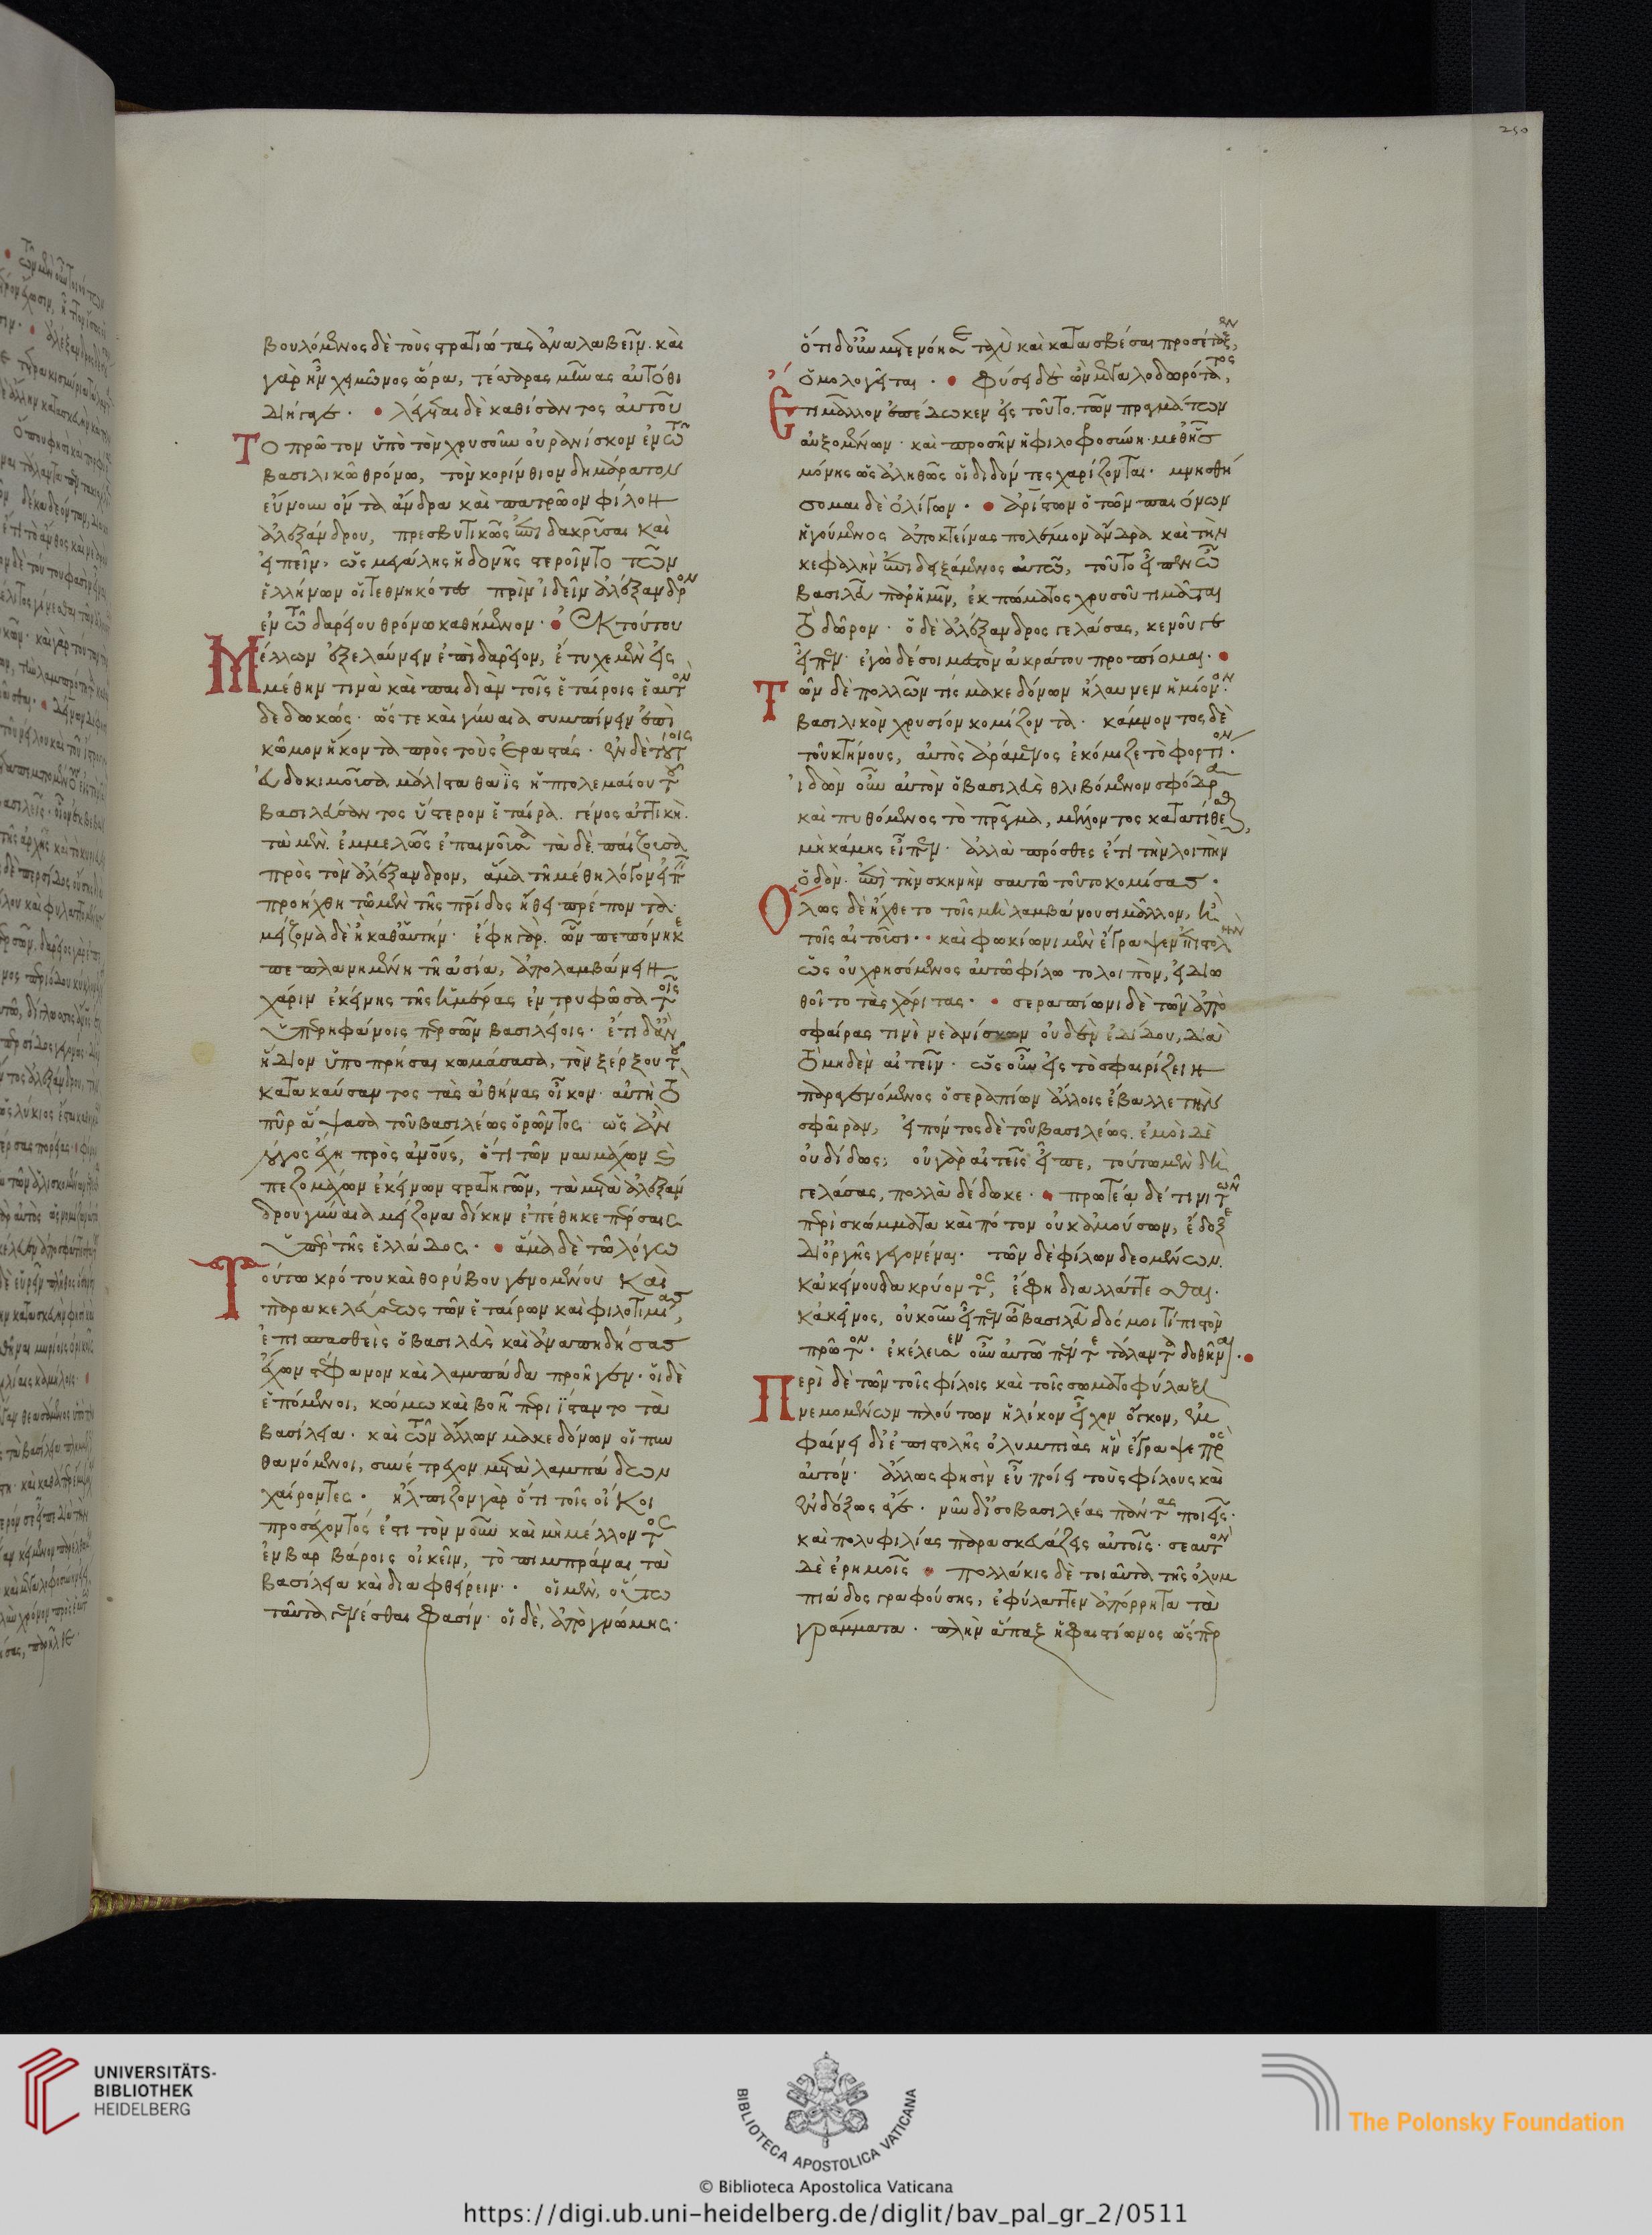 βουλόμενος δὲ τοὺς στρατιώτας ἀναλαβεῖν. καὶ
γὰρ ἦν χειμῶνος ὥρα, τέσσαρας μῆνας αὐτόθι
διήγαγε. • λέγεται δὲ καθίσαντος αὐτοῦ
Τὸ πρῶτον ὑπὸ τὸν χρυσοῦν οὐρανίσκον ἐν τῷ
βασιλικῷ θρόνῳ, τὸν κορίνθιον δημάρατον
εὔνουν ὄντα ἄνδρα καὶ πατρῷον φίλον
ἀλεξάνδρου, πρεσβυτικῶς ἐπιδακρῦσαι καὶ
εἰπεῖν, ὡς μεγάλης ἡδονῆς στεροῖντο τῶν
ἑλλήνων οἱ τεθνηκότες πρὶν ἰδεῖν ἀλέξανδρον
ἐν τῷ δαρείου θρόνῳ καθήμενον. • ἐκ τούτου
Μέλλων ἐξελαύνειν ἐπὶ δαρεῖον, ἔτυχε μὲν εἰς
μέθην τινὰ καὶ παιδιὰν τοῖς ἑταίροις ἑαυτὸν
δεδωκώς. ὥστε καὶ γύναια συμπίνειν ἐπὶ
κῶμον ἥκοντα πρὸς τοὺς ἐραστάς. ἐν δὲ τούτοις
εὐδοκιμοῦσα μάλιστα θαῒς ἡ πτολεμαίου τοῦ
βασιλεύσαντος ὕστερον ἑταίρα. γένος ἀττικὴ.
τὰ μὲν. ἐμμελῶς ἐπαινοῦσα τὰ δὲ. παίζουσα
πρὸς τὸν ἀλέξανδρον, ἅμα τῇ μέθῃ λόγον εἰπεῖν
προήχθη τῷ μὲν τῆς πατρίδος ἤθει πρέποντα.
μείζονα δὲ ἢ καθ' αὑτήν. ἔφη γὰρ. ὧν πεπόνηκε
πεπλανημένη τὴν ἀσίαν, ἀπολαμβάνειν
χάριν ἐκείνης τῆς ἡμέρας ἐντρυφῶσα τοῖς
ὑπερηφάνοις περσῶν βασιλείοις. ἔτι δ' ἂν
ἥδιον ὑποπρῆσαι κωμάσασα, τὸν ξέρξου τοῦ
κατακαύσαντος τὰς ἀθήνας οἶκον. αὐτὴ τὸ
πῦρ ἅψασα τοῦ βασιλέως ὁρῶντος. ὡς ἂν
λόγος ἔχῃ πρὸς ἀνθρώπους, ὅτι τῶν ναυμάχων καὶ
πεζομάχων ἐκείνων στρατηγῶν, τὰ μετὰ ἀλεξάν
δρου γύναια μείζονα δίκην ἐπέθηκε πέρσαις
ὑπὲρ τῆς ἑλλάδος. • ἅμα δὲ τῷ λόγῳ
Τούτῳ κρότου καὶ θορύβου γενομένου καὶ
παρακελεύσεως τῶν ἑταίρων καὶ φιλοτιμίας,
ἐπισπασθεὶς ὁ βασιλεὺς καὶ ἀναπηδήσας
ἔχων στέφανον καὶ λαμπάδα προῆγεν. οἱ δὲ
ἑπόμενοι, κώμῳ καὶ βοῇ περιΐσταντο τὰ
βασίλεια. καὶ τῶν ἄλλων μακεδόνων οἱ πυν
θανόμενοι, συνέτρεχον μετὰ λαμπάδων
χαίροντες. ἤλπιζον γὰρ ὅτι τοῖς οἴκοι
προσέχοντός ἐστι τὸν νοῦν καὶ μὴ μέλλοντος
ἐν βαρβάροις οἰκεῖν, τὸ πιμπράναι τὰ
βασίλεια καὶ διαφθείρειν. οἱ μὲν, οὕτω
ταῦτα γενέσθαι φασίν. οἱ δὲ, ἀπὸ γνώμης.
250
ὅτι δ' οὖν μετενόησε ταχὺ καὶ κατασβέσαι προσέταξεν,
ὁμολογεῖται. • φύσει δὲ ὢν μεγαλοδωρότατος,
Ἔτι μᾶλλον ἐπέδωκεν εἰς τοῦτο. τῶν πραγμάτων
αὐξομένων. καὶ προσῆν ἡ φιλοφροσύνη. μεθ' ἧς
μόνης ὡς ἀληθῶς οἱ διδόντες χαρίζονται. μνησθή
σομαι δὲ ὀλίγων. • ἀρίστων ὁ τῶν παιόνων
ἡγούμενος ἀποκτείνας πολέμιον ἄνδρα καὶ τὴν
κεφαλὴν ἐπιδειξάμενος αὐτῷ, τοῦτο εἶπεν ὦ
βασιλεῦ παρ' ἡμῖν, ἐκπώματος χρυσοῦ τιμᾶται
τὸ δῶρον. ὁ δὲ ἀλέξανδρος γελάσας, κενοῦ γε
εἶπεν. ἐγὼ δέ σοι μεστὸν ἀκράτου προπίομαι. •
Τῶν δὲ πολλῶν τις μακεδόνων ἤλαυνεν ἡμίονον
βασιλικὸν χρυσίον κομίζοντα. κάμνοντος δὲ
τοῦ κτήνους, αὐτὸς ἀράμενος ἐκόμιζε τὸ φορτίον.
ἰδὼν οὖν αὐτὸν ὁ βασιλεὺς θλιβόμενον σφόδρα
καὶ πυθόμενος τὸ πρᾶγμα, μέλλοντος κατατίθεσθαι,
μὴ κάμῃς εἶπεν. ἀλλὰ πρόσθες ἔτι τὴν λοιπὴν
ὁδὸν. ἐπὶ τὴν σκηνὴν σαυτῷ τοῦτο κομίσας.
Ὅλως δὲ ἤχθετο τοῖς μὴ λαμβάνουσι μᾶλλον, ἢ
τοῖς αἰτοῦσι. • καὶ φωκίωνι μὲν ἔγραψεν ἐπιστολὴν
ὡς οὐ χρησόμενος αὐτῷ φίλῳ τολοιπὸν, εἰ διω
θοῖτο τὰς χάριτας. • σεραπίωνι δὲ τῶν ἀπὸ
σφαίρας τινὶ νεανίσκων οὐδὲν ἐδίδου, διὰ
τὸ μηδὲν αἰτεῖν. ὡς οὖν εἰς τὸ σφαιρίζειν
παραγενόμενος ὁ σεραπίων ἄλλοις ἔβαλλε τὴν
σφαῖραν, εἰπόντος δὲ τοῦ βασιλέως. ἐμοὶ δὲ
οὐ δίδως; οὐ γὰρ αἰτεῖς εἶπε, τούτῳ μὲν δὴ
γελάσας, πολλὰ δέδωκε. • πρωτέᾳ δέ τινι τῶν
περὶ σκώμματα καὶ πότον οὐκ ἀμούσων, ἔδοξε
δι' ὀργῆς γεγονέναι. τῶν δὲ φίλων δεομένων.
κἀκείνου δακρύοντος, ἔφη διαλλάττεσθαι.
κἀκεῖνος, οὐκοῦν εἶπεν ὦ βασιλεῦ δός μοι τί πιστὸν
πρῶτον. ἐκέλευσεν οὖν αὐτῷ πέντε τάλαντα δοθῆναι. •
Περὶ δὲ τῶν τοῖς φίλοις καὶ τοῖς σωματοφύλαξι
νεμομένων πλούτων ἡλίκον εἶχον ὄγκον, ἐμ
φαίνει δι' ἐπιστολῆς ὀλυμπιὰς ἣν ἔγραψε πρὸς
αὐτόν. ἄλλως φησὶν εὖ ποίει τοὺς φίλους καὶ
ἐνδόξως ἄγε. νῦν δ' ἰσοβασιλέας πάντας ποιεῖς.
καὶ πολυφιλίας παρασκευάζεις αὐτοῖς. σεαυτὸν
δὲ ἐρημοῖς • πολλάκις δὲ τοιαῦτα τῆς ὀλυμ
πιάδος γραφούσης, ἐφύλαττεν ἀπόρρητα τὰ
γράμματα. πλὴν ἅπαξ ἡφαιστίωνος ὥσπερ
UNIVERSITÄTS-
BIBLIOTHEK
HEIDELBERG
BIBLIOTECA APOSTOLICA VATICANA
The Polonsky Foundation
© Biblioteca Apostolica Vaticana
https://digi.ub.uni-heidelberg.de/diglit/bav_pal_gr_2/0511